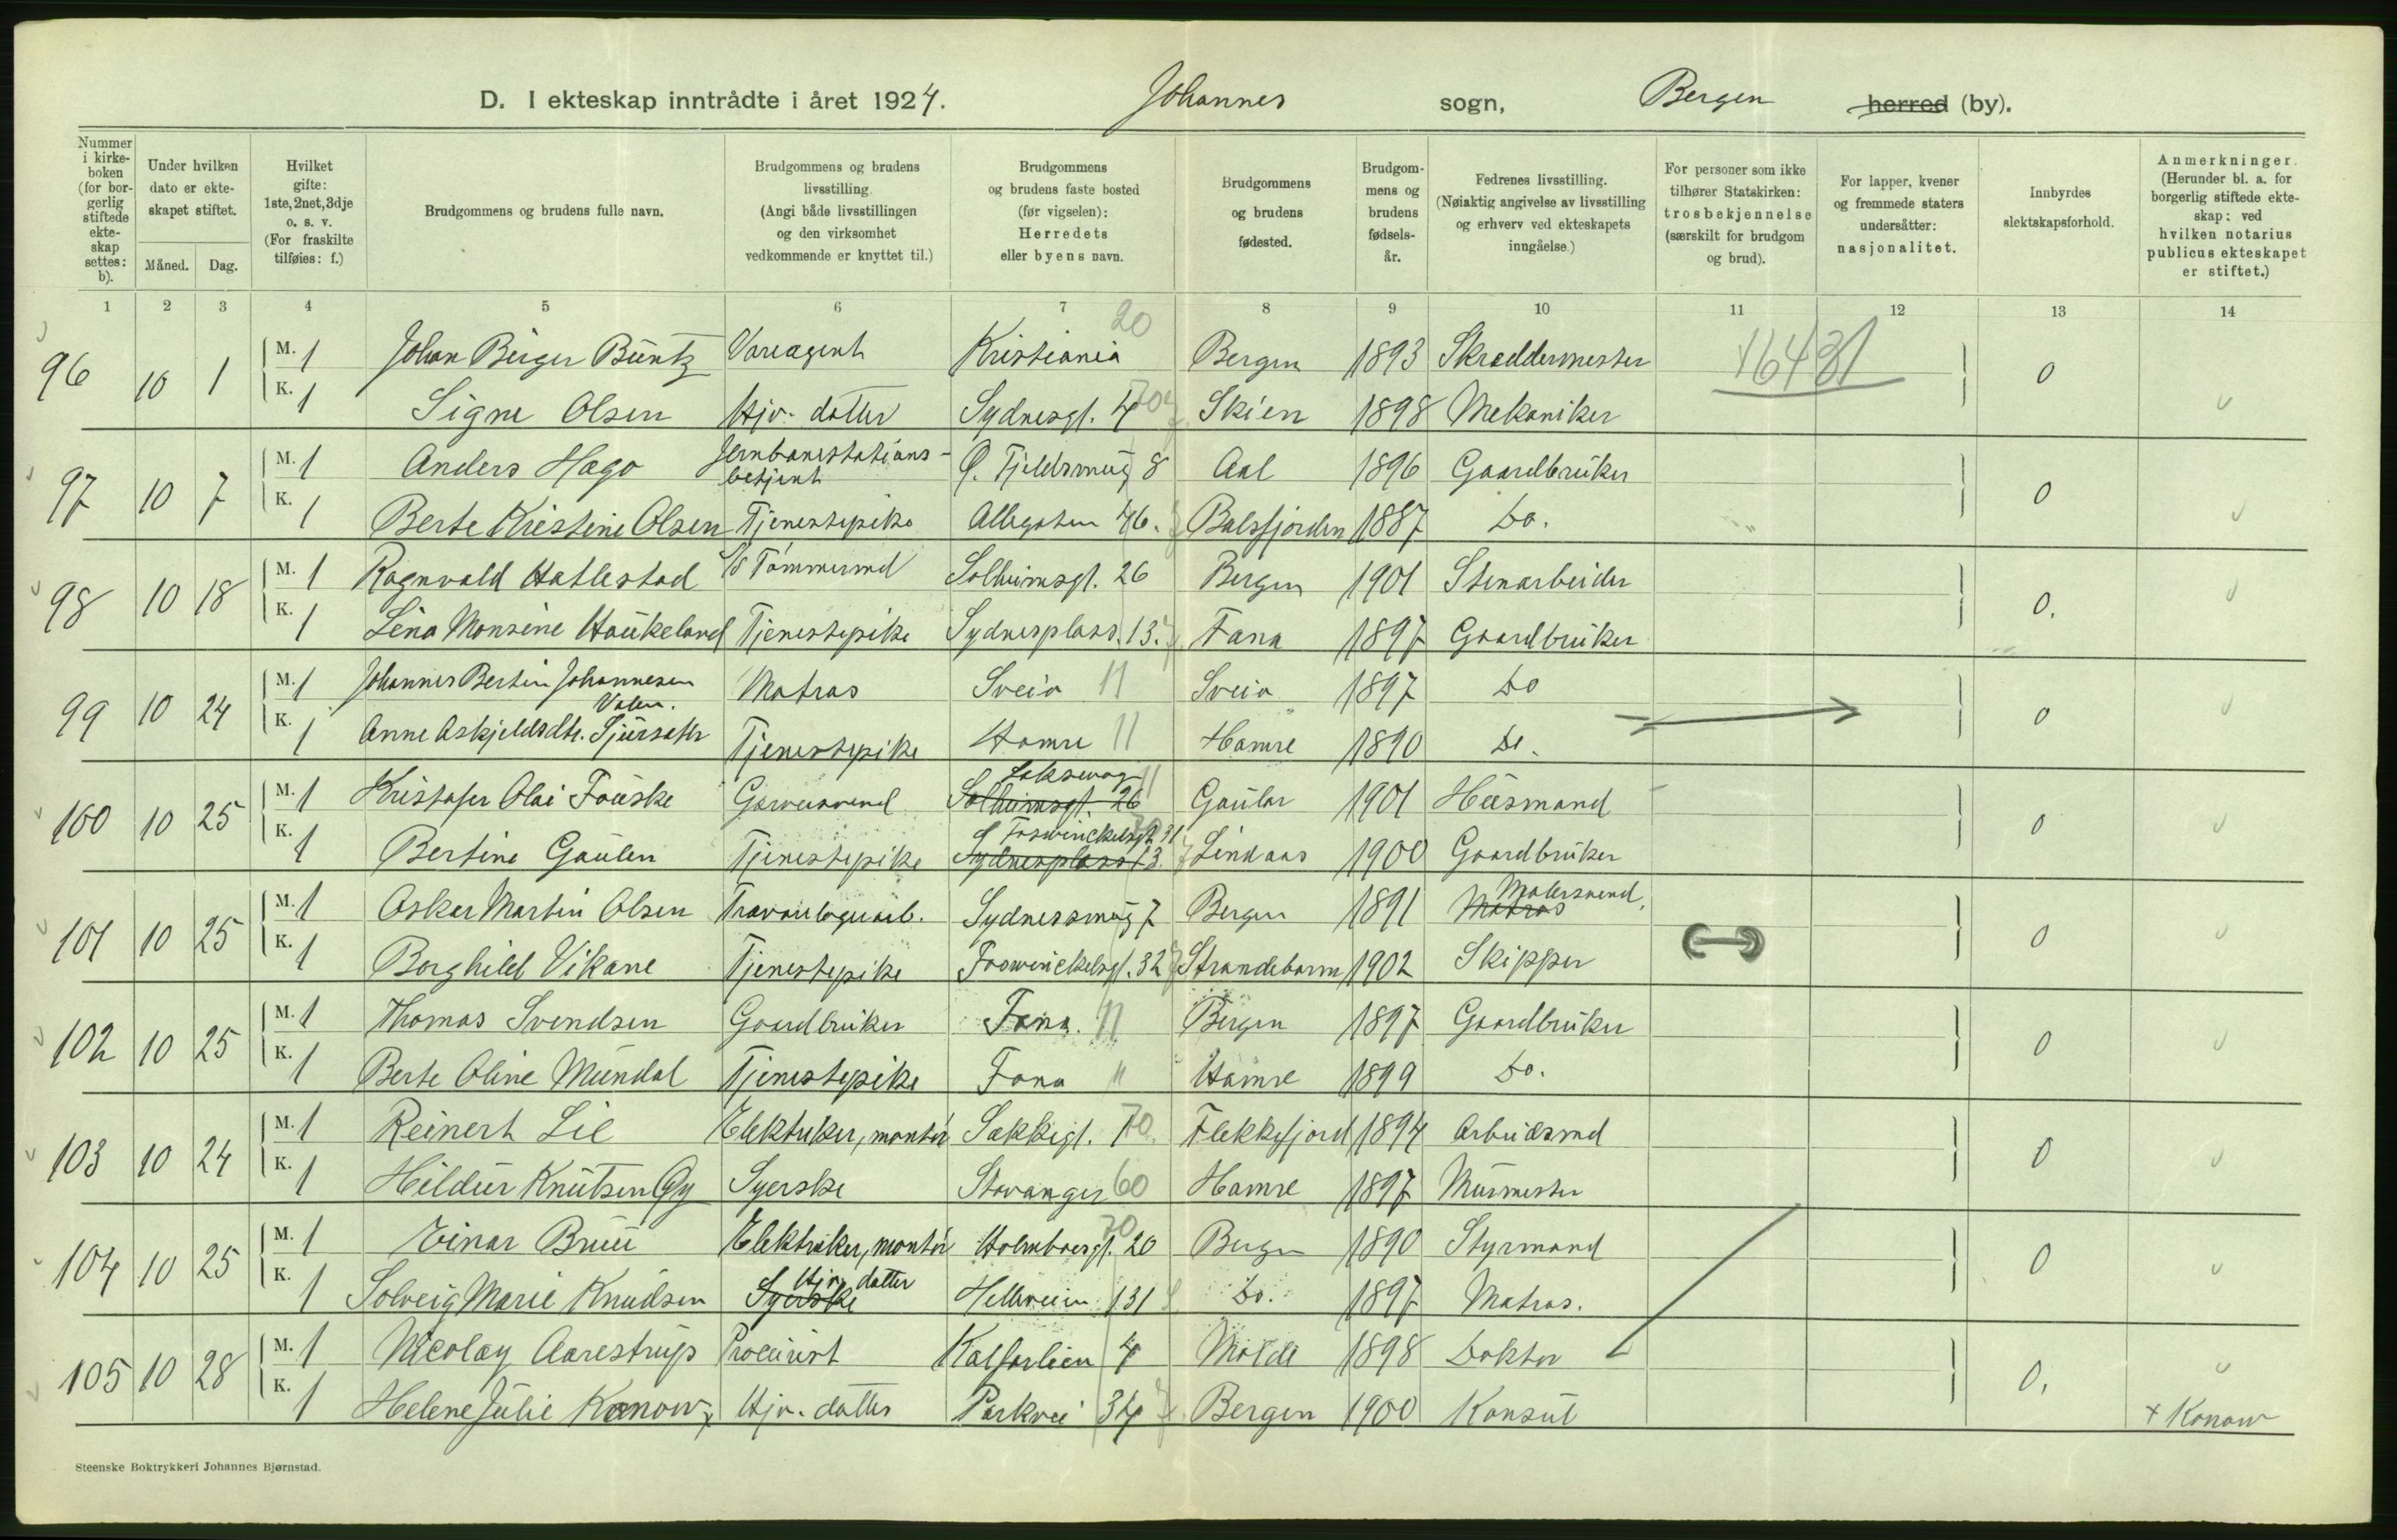 D. I ekteskap inntrådte i året 1924. Johannes sogn, Bergen herred (by).
Nummer i kirke-boken (for bor-gerlig stiftede ekte-skap settes: b).
Under hvilken dato er ekte-skapet stiftet.
Måned. Dag.
Hvilket gifte: 1ste, 2net, 3dje o. s. v. (For fraskilte tilføies: f.)
Brudgommens og brudens fulle navn.
Brudgommens og brudens livsstilling. (Angi både livsstillingen og den virksomhet vedkommende er knyttet til.)
Brudgommens og brudens faste bosted (før vigselen): Herredets eller byens navn.
Brudgommens og brudens fødested.
Brudgom-mens og brudens fødsels-år.
Fedrenes livsstilling. (Nøiaktig angivelse av livsstilling og erhverv ved ekteskapets inngåelse.)
For personer som ikke tilhører Statskirken: trosbekjennelse (særskilt for brudgom og brud).
For lapper, kvener og fremmede staters undersåtter: nasjonalitet.
Innbyrdes slektskapsforhold.
Anmerkninger. (Herunder bl. a. for borgerlig stiftede ekte-skap: ved hvilken notarius publicus ekteskapet er stiftet.)
1 2 3 4 5 6 7 8 9 10 11 12 13 14
96 10 1 M. 1 Johan Birger Büntz Vareagent Kristiania 20 Bergen 1893 Skreddermester 16431 0
K. 1 Signe Olsen Hjv. datter Sydnesgt. 4 Skien 1898 Mekaniker
97 10 7 M. 1 Anders Hago Jernbanestations-betjent Ø. Fjeldsmug 8 Aal 1896 Gaardbruker 0
K. 1 Berte Kristine Olsen Tjenestepike Allegaten 46. Balsfjorden 1887 Do.
98 10 18 M. 1 Ragnvald Hatlestad Tømmermd Solheimsgt. 26 Bergen 1901 Stenarbeider 0.
K. 1 Lena Monsine Haukeland Tjenestepike Sydnesplass. 13. Fana 1897 Gaardbruker
99 10 24 M. 1 Johannes Bertin Johannesen Valen. Matros Sveio 11 Sveio 1897 Do 0
K. 1 Anne Askjeldsdtr. Sjursæter Tjenestepike Hamre 11 Hamre 1890 Do.
100 10 25 M. 1 Kristofer Olai Fauske Garversvend Solheimsgt. 26 Laksevag 11 Gaular 1901 Husmand 0
K. 1 Bertine Gaulen Tjenestepike Sydnesplass 13. Foswinckelsgt. 31 Lindaas 1900 Gaardbruker
101 10 25 M. 1 Oskar Martin Olsen Travarelagerarb. Sydnessmug 7 Bergen 1891 Matros Malersvend. 0
K. 1 Borghild Vikane Tjenestepike Foswinckelsgt. 32 Strandebarm 1902 Skipper
102 10 25 M. 1 Thomas Svendsen Gaardbruker Fana. 11 Bergen 1897 Gaardbruker 0
K. 1 Berte Oline Mundal Tjenestepike Fana 11 Hamre 1899 Do.
103 10 24 M. 1 Reinert Lie Elektriker, montør Sekkegt. 1 Flekkefjord 1894 Arbeidsmd 0
K. 1 Hildur Knutsen Gy Syerske Stavanger 60 Hamre 1897 Murmester
104 10 25 M. 1 Einar Bruu Elektriker, montør Holmboesgt. 20 Bergen 1890 Styrmand 0
K. 1 Solveig Marie Knudsen Syerske Hjv. datter Helleveien 131 Do. 1897 Matros.
105 10 28 M. 1 Nicolay Aarestrup Procurist Kalfarlien 4 Molde 1898 Doktor 0.
K. 1 Helene Julie Konow x Hjv. datter Parkvei 34 Bergen 1900 Konsul x Konow
Steenske Boktrykkeri Johannes Bjørnstad.